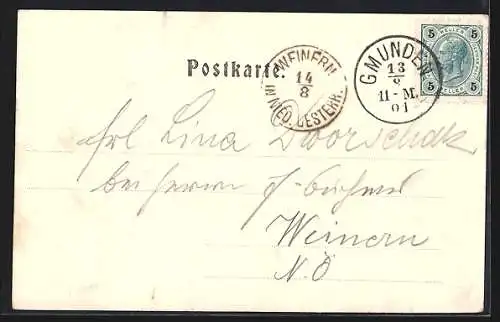 Postkarte.
WEINERN
14
8
IN NIED. OESTERR.
GMUNDEN
13
8
11-M.
01
5 HELLER 5
5 5
Frl Lina Dworschak
bei Herrn J.
Weinern
N. Ö